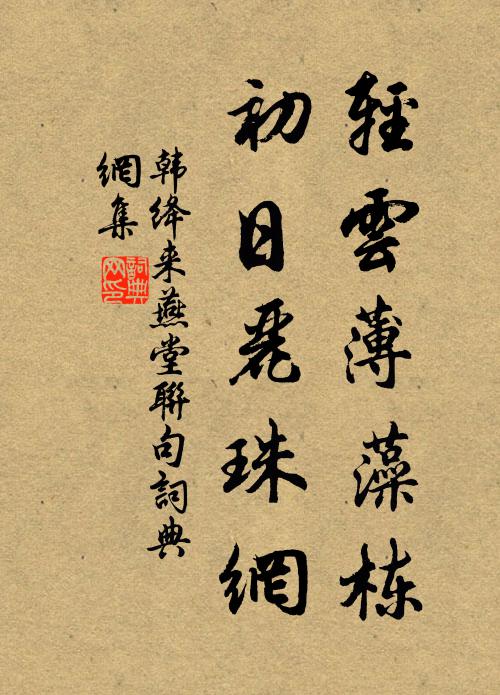 輕雲薄藻栋
初日麗珠網
韩绛来燕堂聯句詞典
網集
詞典
网印